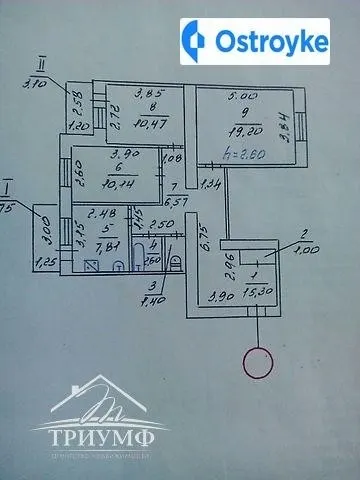 Ostroyke
II
3.10
2.58
1.20
2.72
3.85
8
10.47
5.00
9
19.20
3.84
h=2.60
3.90
6
10.14
2.60
1.08
7
6.57
1.34
I
3.00
1.25
3.15
2.48
5
7.81
1.45
2.50
4
2.60
3
1.40
6.75
2.96
1
15.30
3.90
2
1.00
ТРИУМФ
агентство недвижимости